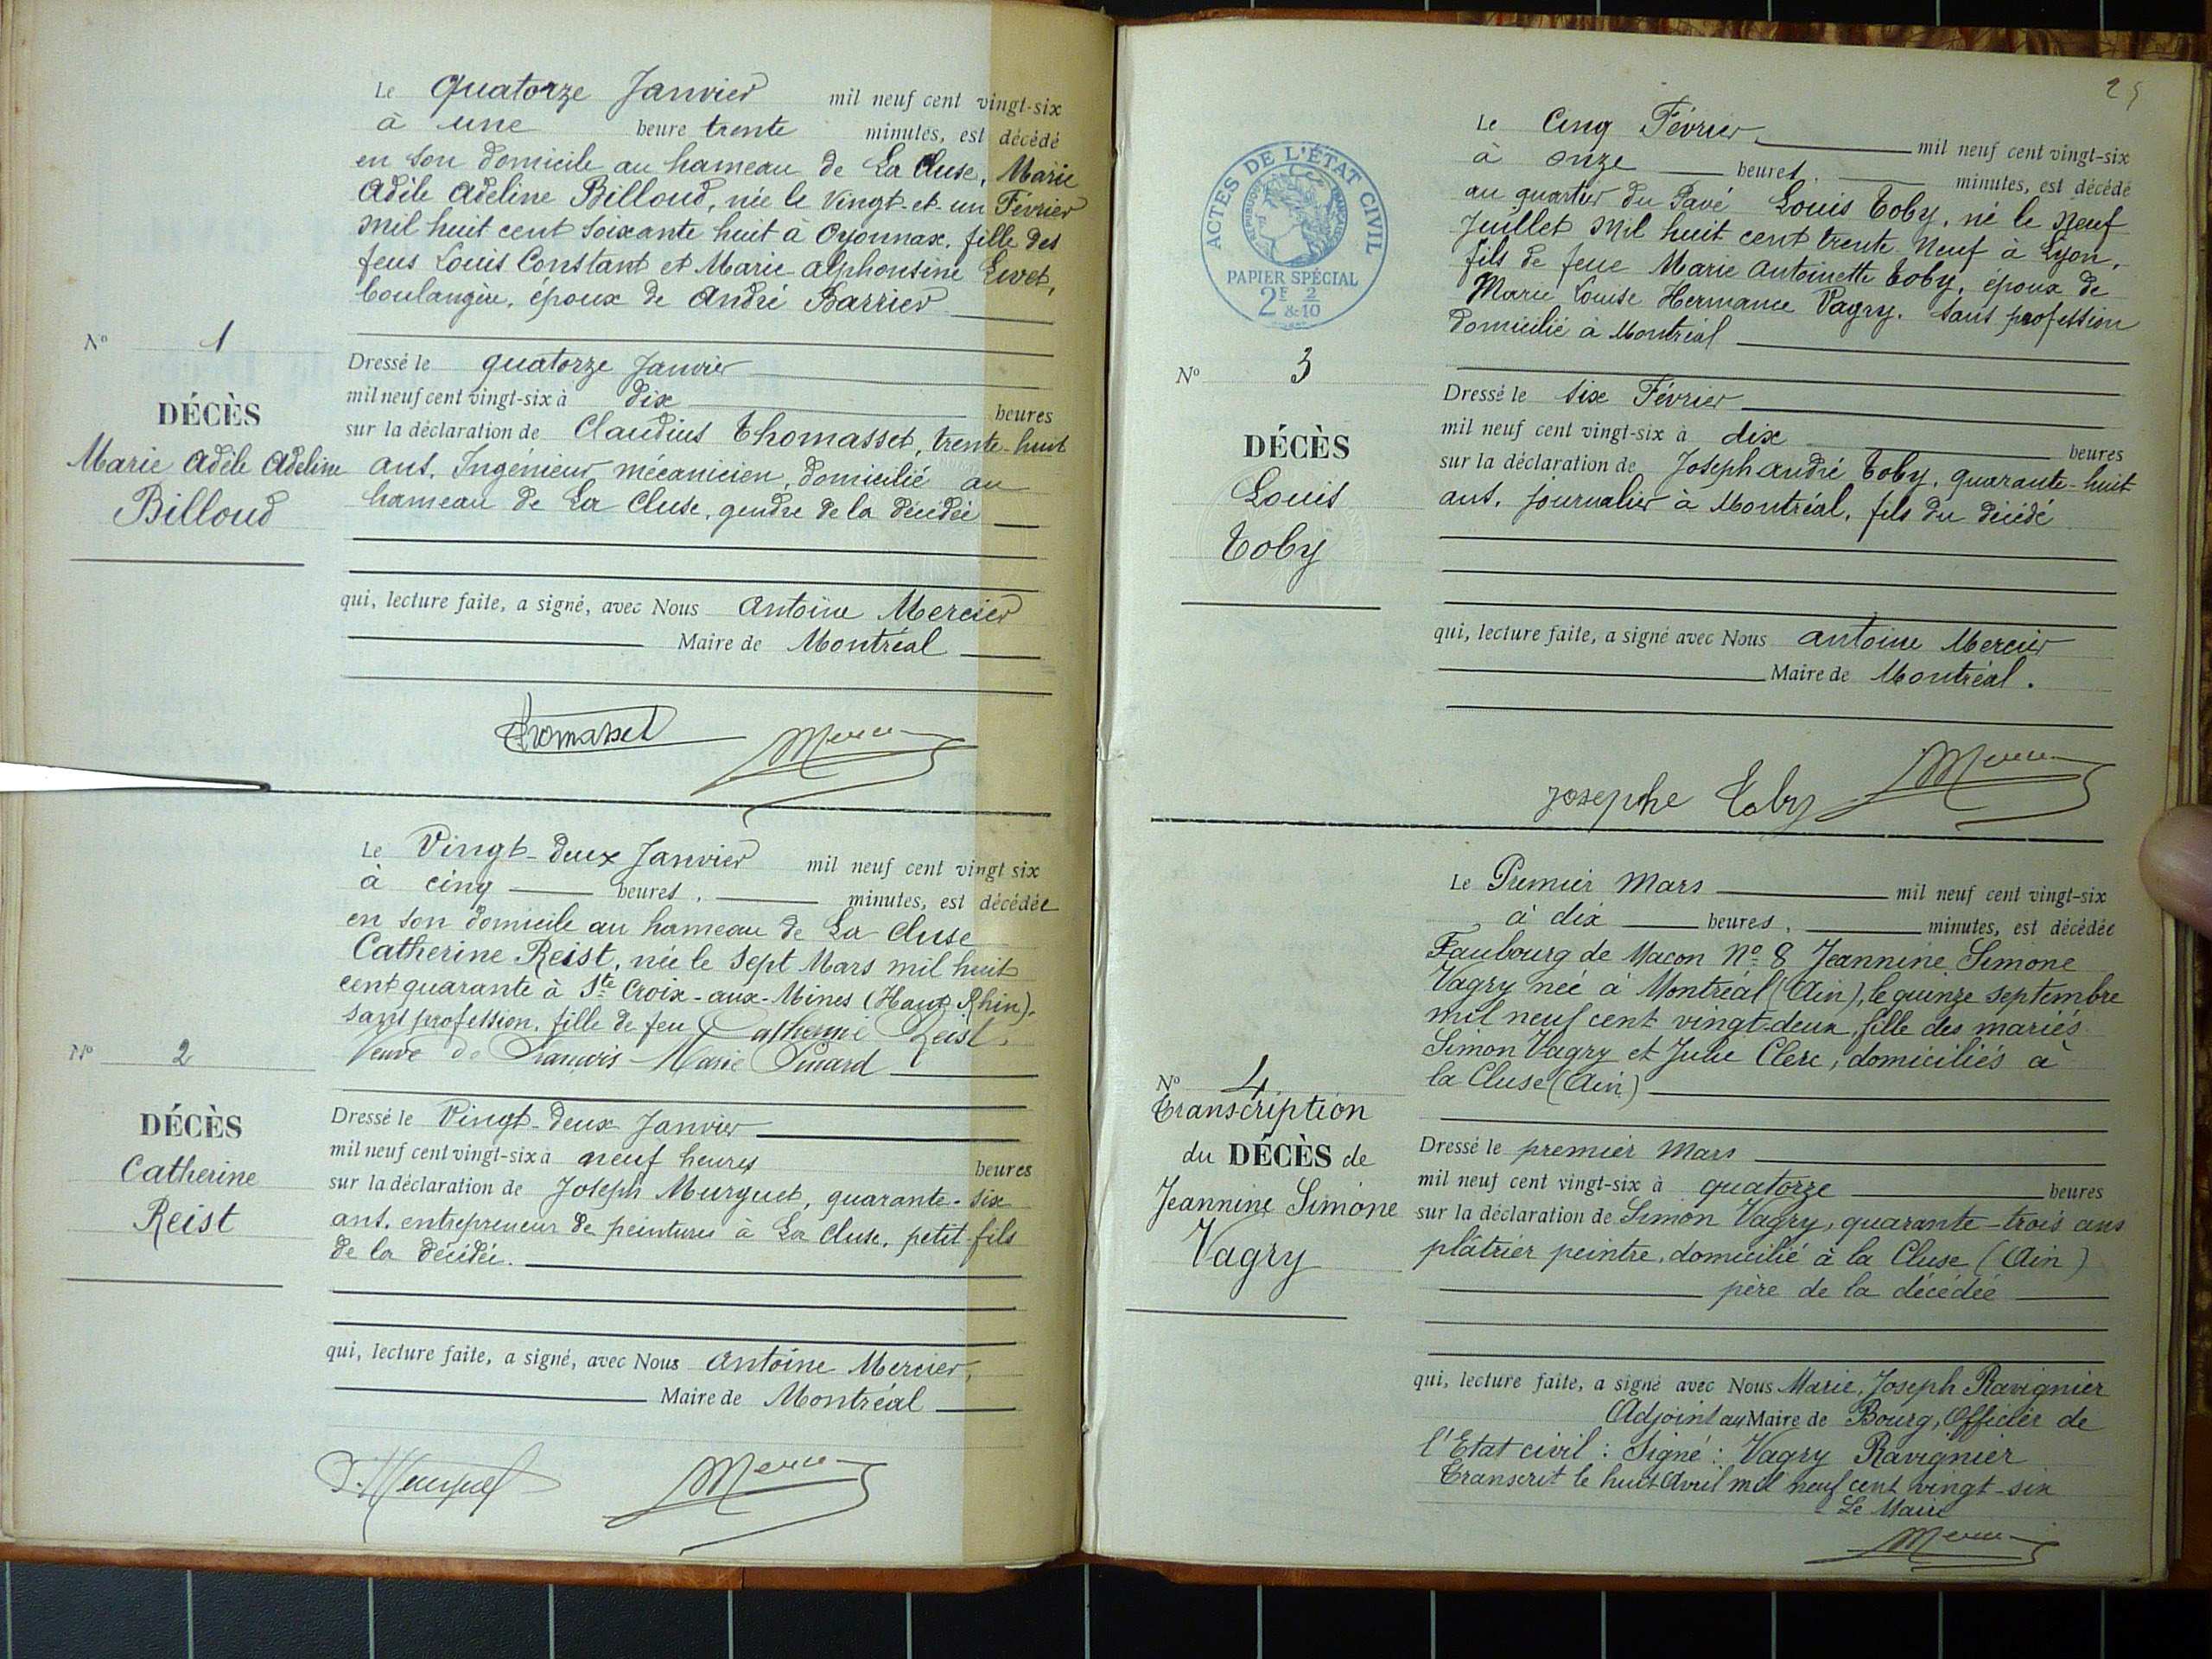 Le Quatorze Janvier mil neuf cent vingt-six
à une heure trente minutes, est décédé
en son domicile au hameau de La Cluse, Marie
Adèle Adeline Billoud, née le Vingt-et-un Février
mil huit cent soixante huit à Oyonnax, fille des
feus Louis Constant et Marie Alphonsine Livet,
boulangère, époux de André Barrier
N° 1
DÉCÈS
Marie Adèle Adeline
Billoud
Dressé le quatorze Janvier
mil neuf cent vingt-six à dix heures
sur la déclaration de Claudius Thomasset, trente-huit
ans, Ingénieur mécanicien, domicilié au
hameau de La Cluse, gendre de la décédée
qui, lecture faite, a signé, avec Nous Antoine Mercier
Maire de Montréal
Thomasset Mercier
Le Vingt-deux Janvier mil neuf cent vingt six
à cinq heures, minutes, est décédée
en son domicile au hameau de La Cluse
Catherine Reist, née le sept Mars mil huit
cent quarante à Ste Croix-aux-Mines (Haut Rhin),
sans profession, fille de feu Catherine Reist,
Veuve de François-Marie
N° 2
DÉCÈS
Catherine
Reist
Dressé le Vingt-deux Janvier
mil neuf cent vingt-six à neuf heures heures
sur la déclaration de Joseph Murguet, quarante-six
ans, entrepreneur de peintures à La Cluse, petit-fils
de la décédée.
qui, lecture faite, a signé, avec Nous Antoine Mercier,
Maire de Montréal
Mercier
25
ACTES DE L'ÉTAT CIVIL
RÉPUBLIQUE FRANÇAISE
PAPIER SPÉCIAL
2F & 2/10
Le Cinq Février mil neuf cent vingt-six
à onze heures, minutes, est décédé
au quartier du Pavé Louis Toby, né le neuf
Juillet mil huit cent trente neuf à Lyon,
fils de feue Marie Antoinette Toby, époux de
Marie Louise Hermance Vagry, sans profession
domicilié à Montréal
N° 3
DÉCÈS
Louis
Toby
Dressé le six Février
mil neuf cent vingt-six à dix heures
sur la déclaration de Joseph André Toby, quarante-huit
ans, journalier à Montréal, fils du décédé
qui, lecture faite, a signé avec Nous Antoine Mercier
Maire de Montréal.
Josephe Toby Mercier
Le Premier Mars mil neuf cent vingt-six
à dix heures, minutes, est décédée
Faubourg de Macon No 8 Jeannine, Simone
Vagry née à Montréal (Ain), le quinze septembre
mil neuf cent vingt-deux, fille des mariés
Simon Vagry et Julie Clerc, domiciliés à
la Cluse (Ain)
N° 4
Transcription
du DÉCÈS de
Jeannine Simone
Vagry
Dressé le premier Mars
mil neuf cent vingt-six à quatorze heures
sur la déclaration de Simon Vagry, quarante-trois ans
plâtrier peintre, domicilié à la Cluse (Ain)
père de la décédée
qui, lecture faite, a signé avec Nous Marie, Joseph Ravignier
Adjoint au Maire de Bourg, Officier de
l'Etat civil : Signé : Vagry Ravignier
Transcrit le huit Avril mil neuf cent vingt-six
Le Maire
Mercier